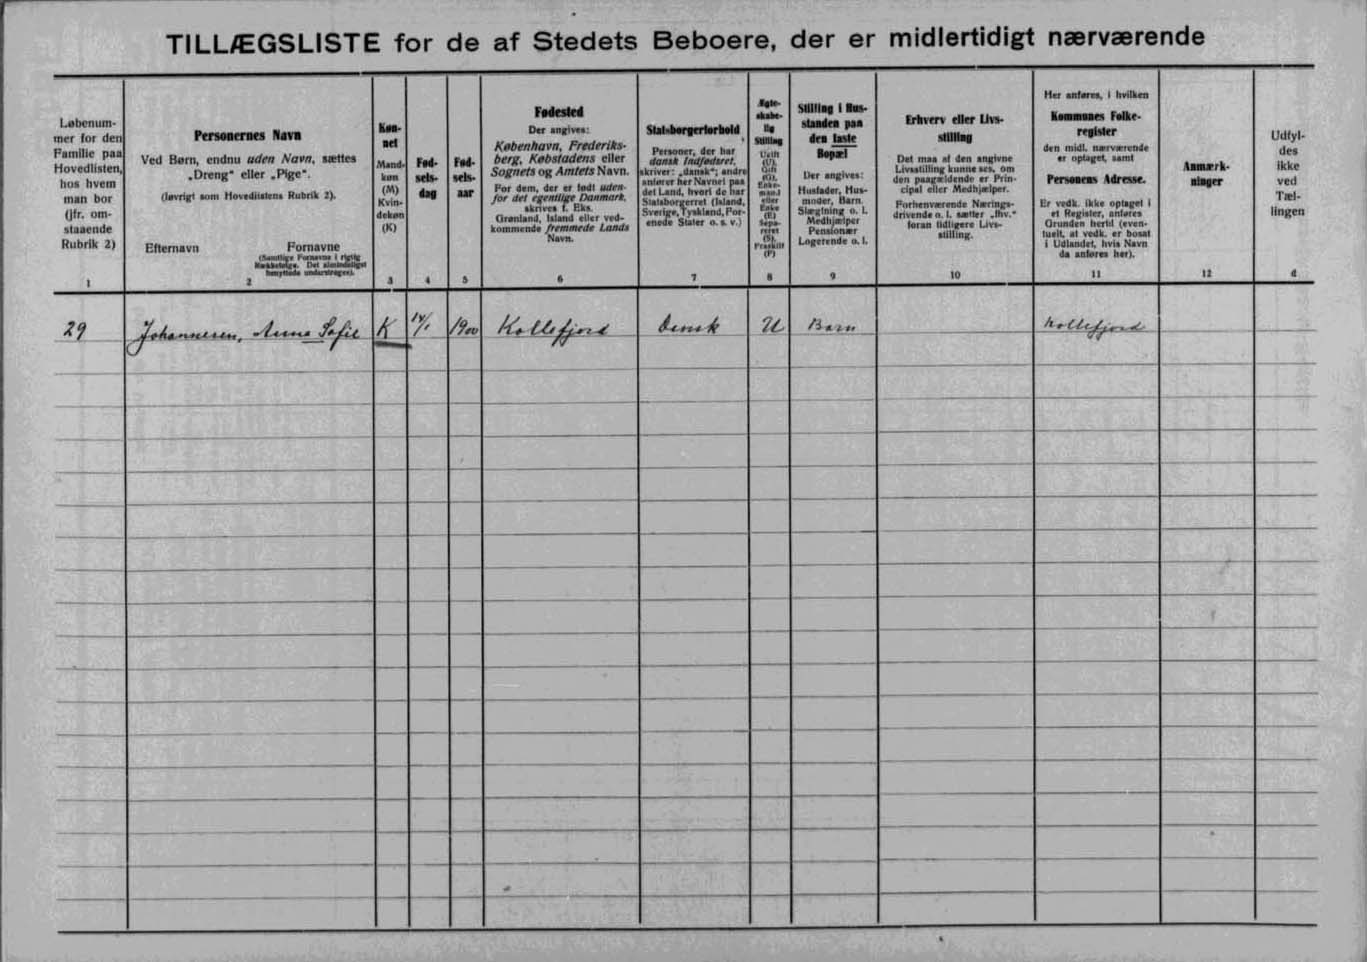 TILLÆGSLISTE for de af Stedets Beboere, der er midlertidigt nærværende
Løbenum-
mer for den
Familie paa
Hovedlisten,
hos hvem
man bor
(jfr. om-
staaende
Rubrik 2)
1
Personernes Navn
Ved Børn, endnu uden Navn, sættes
„Dreng“ eller „Pige“.
(Iøvrigt som Hovedlistens Rubrik 2).
Efternavn
Fornavne
(Samtlige Fornavne i rigtig
Rækkefølge. Det almindeligst
benyttede understreges).
2
Køn-
net
Mand-
køn
(M)
Kvin-
dekøn
(K)
3
Fød-
sels-
dag
4
Fød-
sels-
aar
5
Fødested
Der angives:
København, Frederiks-
berg, Købstadens eller
Sognets og Amtets Navn.
For dem, der er født uden-
for det egentlige Danmark,
skrives f. Eks.
Grønland, Island eller ved-
kommende fremmede Lands
Navn.
6
Statsborgerforhold
Personer, der har
dansk Indfødsret,
skriver: „dansk“; andre
anfører her Navnet paa
det Land, hvori de har
Statsborgerret (Island,
Sverige, Tyskland, For-
enede Stater o. s. v.)
7
Ægte-
skabe-
lig
Stilling
Ugift
(U),
Gift
(G),
Enke-
mand
eller
Enke
(E)
Sepa-
reret
(S),
Fraskilt
(F)
8
Stilling i Hus-
standen paa
den faste
Bopæl
Der angives:
Husfader, Hus-
moder, Barn.
Slægtning o. l.
Medhjælper
Pensionær
Logerende o. l.
9
Erhverv eller Livs-
stilling
Det maa af den angivne
Livsstilling kunne ses, om
den paagældende er Prin-
cipal eller Medhjælper.
Forhenværende Nærings-
drivende o. l. sætter „fhv.“
foran tidligere Livs-
stilling.
10
Her anføres, i hvilken
Kommunes Folke-
register
den midl. nærværende
er optaget, samt
Personens Adresse.
Er vedk. ikke optaget i
et Register, anføres
Grunden hertil (even-
tuelt, at vedk. er bosat
i Udlandet, hvis Navn
da anføres her).
11
Anmærk-
ninger
12
Udfyl-
des
ikke
ved
Tæl-
lingen
d
29 Johannesen, Anna Sofie K 14/1 1900 Kollefjord Dansk U Barn Kollefjord